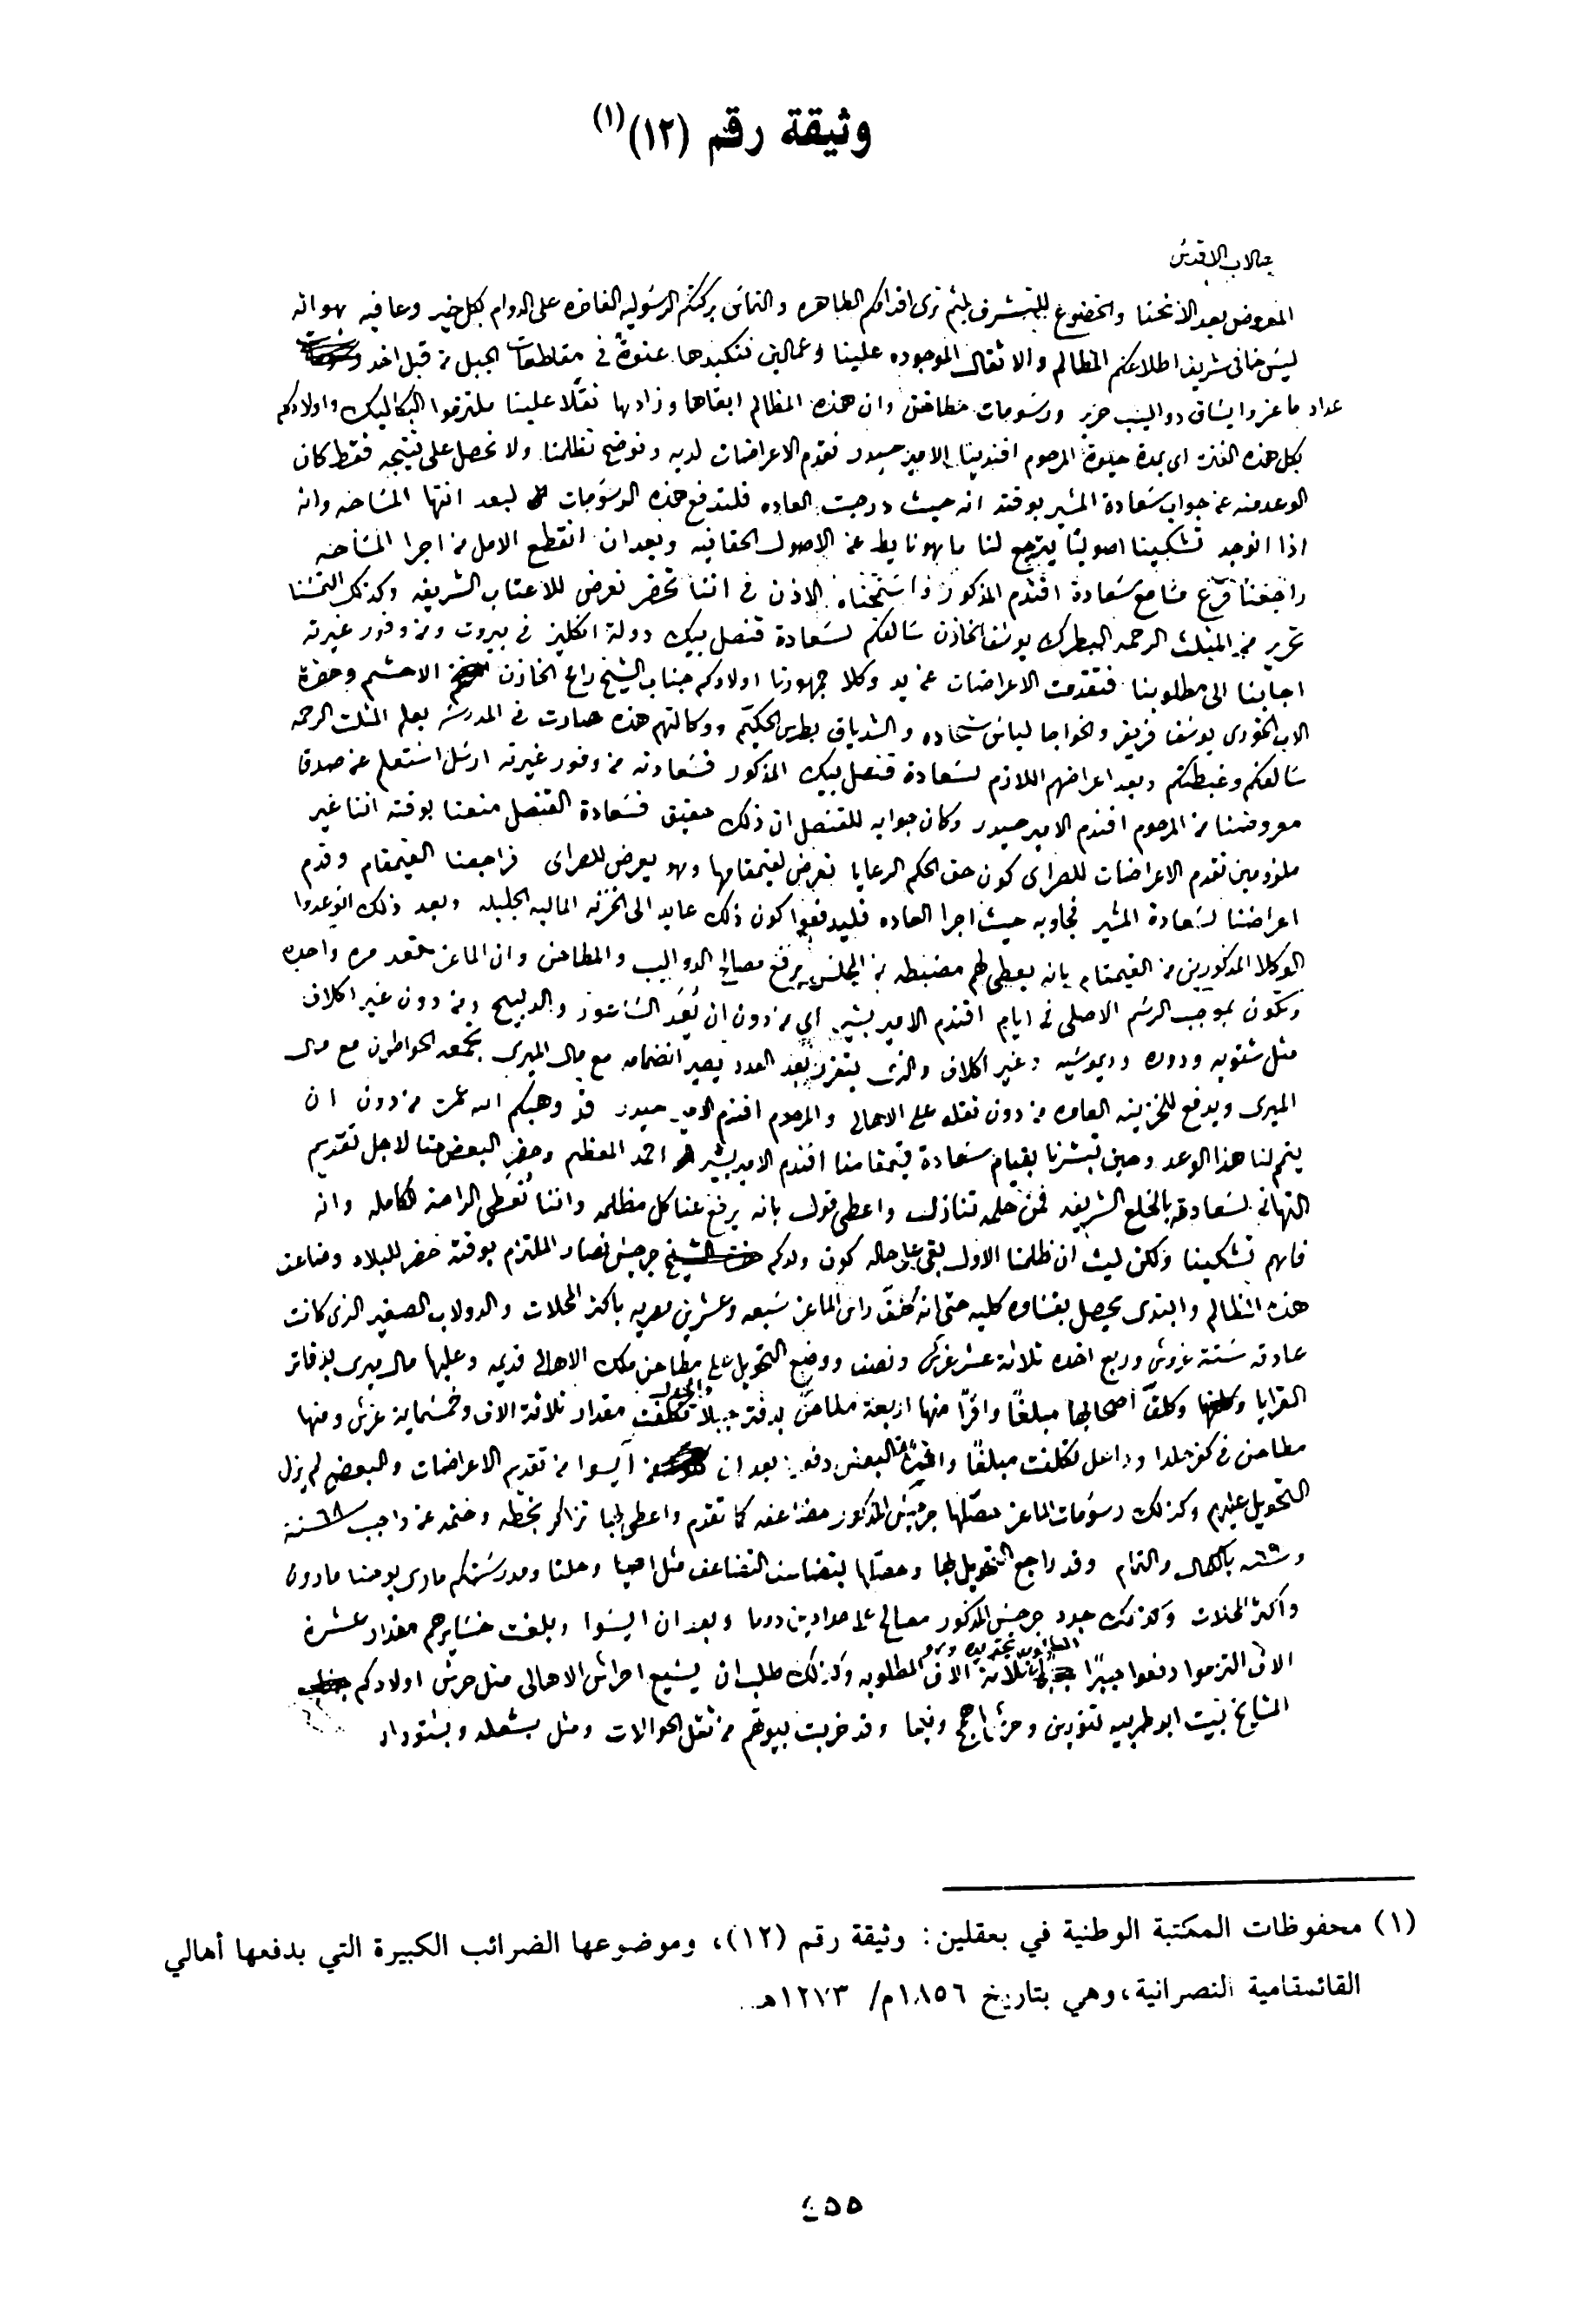 وثيقة رقم (١٢)(١)
الاب الاقدس
المعروض بعد الانحنا والخضوع للتشرف بلثم ثرى اقدامكم الطاهره والتماس بركتكم الرسوليه الفاخره على الدوام بكل خير وعافيه هو انه
ليس خافي شريف اطلاعكم المظالم والاثقال الموجوده علينا وعمالين نتكبدها عنوةً في مقاطعات الجبل من قبل اخد
عداد ماعز وايساق دواليب حرير ورسومات مطاحن وان هذه المظالم ابقاها وزادها ثقلًا علينا ملتزموا البكاليك واولادكم
بكل هذه الفترة اى بمدة حيوة المرحوم افندينا الامير حيدر نقدم الاعراضات لديه ونوضح تظلمنا ولا نحصل على نتيجه فقط كان
الوعد منه عن جواب سعادة المشير بوقته انه حيث درجت العاده فلتدفع هذه الرسومات لبعد انتها المساحه وانه
اذا انوجد تشكينا اصوليًا يترجع لنا ما هو نايط عن الاصول الحقانيه وبعد ان انقطع الامل من اجرا المساحه
راجعنا قرع مسامع سعادة افندم المذكور واستمنحناه الاذن في اننا نحضر نعرض للاعتاب الشريفه وكذلك التمسنا
تحرير من المثلث الرحمه البطرك يوسف الخازن سالفكم لسعادة قنصل بيك دولة انكليز في بيروت ومن وفور غيرته
اجابنا الى مطلوبنا فتقدمت الاعراضات عن يد وكلا جمهورنا اولادكم جناب الشيخ راع الخازن الاحشم وحضرة
الاب الخورى يوسف فريفر والخواجا لياس شحاده والشدياق بطرس الحكيم ووكالتهم هذه صارت في المدرسة بعلم المثلث الرحمه
سالفكم وغبطتكم وبعد اعراضهم اللازم لسعادة قنصل بيك المذكور فسعادته من وفور غيرته ارسل استعلم عن صدق
معروضنا من المرحوم افندم الامير حيدر وكان جوابه للقنصل ان ذلك حقيق فسعادة القنصل منعنا بوقته اننا غير
ملزومين نقدم الاعراضات للصراى كون حق الحكم الرعايا تعرض لقيمقامها وهو يعرض للصراى فراجعنا القيمقام وقدم
اعراضنا لسعادة المشير فجاوبه حيث اجرا العاده فليدفعوا كون ذلك عايد الى الخزنه الماليه الجليله وبعد ذلك انوعدوا
الوكلا المذكورين من القيمقام بانه يعطي لهم مضبطه من المجلس برفع مصالح الدواليب والمطاحن وان الماعز ينعد مره واحده
وتكون بموجب الرسم الاصلي في ايام افندم الامير بشير اي من دون ان يُعَد الساعور والدبيح ومن دون غير اكلاف
مثل شتويه ودوره وديموسيه وغير اكلاف والذى يتفرز بعد العدد يصير انضمامه مع مال الميرى بجمعه الحواطرن مع مال
الميرى ويدفع للخزينه العامره من دون ثقله على الاهالي والمرحوم افندم الامير حيدر قد وهبكم الله عمره من دون ان
يتم لنا هذا الوعد وحين تبشرنا بقيام سعادة قيمقامنا افندم الامير بشير احمد المعظم وحضر البعض منا لاجل تقديم
التهاني لسعادته بالخلع الشريفه فمن حلمه تنازل واعطى قول بانه يرفع عنا كل مظلمه واننا نُعطى الراحة الكامله وانه
فاهم تشكينا ولكن ليث ان ظلمنا الاول بقى على حاله كون ولدكم جرجس نصار الملتزم بوقته حضر للبلاد وضاعف
هذه المظالم وابتدى يحصل بقساوه كليه حتى انه كلف راس الماعز سبعه وعشرين مصريه باكثر المحلات والدولاب الصغير الذى كانت
عادته ستة غروش وربع اخده ثلاثة عشر غرش ونصف ووضع التحويل على مطاحن ملك الاهالي قديمه وعليها مال ميرى بدفاتر
القرايا وكلف اصحابها مبلغًا وافرًا منها اربعة مطاحن بدفتر جبيل تكلفت مقدار ثلاثة الاف وخمسماية غرش ومنها
مطاحن في كفر حلدا وداعل تكلفت مبلغًا والبعض دفع بعد ان آيسوا من تقديم الاعراضات والبعض لم يزل
التحويل عليهم وكذلك رسومات الماعز حصّلها جرجس المذكور مضاعفه كما تقدم واعطى لها تذاكر بخطه وختمه عن واجب سنة ٦٨
وسنة ٦٩ بالكمال والتمام وقد راجع التحويل لها وحصلها بتضاعف التضاعف مثل اهيا وحلتا ومدرستكم مارى يوحنا مارون
واكثر المحلات وكذلك جدد جرجس المذكور مصالح على حدادين دوما وبعد ان ايسوا وبلغت خسايرهم مقدار عشرة
الاف التزموا دفعوا جبرًا ثلاثة الاف المطلوبه وكذلك طلب ان يشيع احراش الاهالي مثل حرش اولادكم
المشايخ بيت ابو طربيه لتنورين وقد خربت بيوتهم من ثقل الحوالات ومثل بشعله وبشتودار
(١) محفوظات المكتبة الوطنية في بعقلين: وثيقة رقم (١٢)، وموضوعها الضرائب الكبيرة التي يدفعها أهالي
القائمقامية النصرانية، وهي بتاريخ ١٨٥٦م/ ١٢٧٣هـ.
٤٥٥